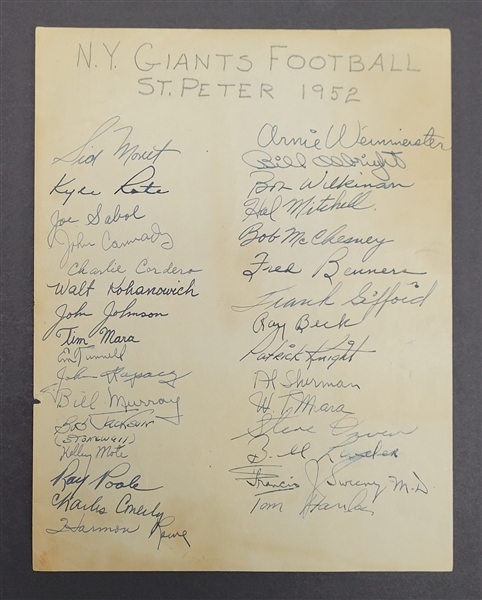 N.Y. GIANTS FOOTBALL
ST. PETER 1952
Sid Moret
Kyle Rote
Joe Sabol
John Cannady
Charlie Cordero
Walt Kohanowich
John Johnson
Tim Mara
Em Tunnell
John Rapacz
Bill Murray
Bob Jackson
(STONEWALL)
Kelley Mote
Ray Poole
Charles Conerly
Harmon Rowe
Arnie Weinmeister
Bill Albright
Bob Wilkinson
Hal Mitchell
Bob McChesney
Fred Benners
Frank Gifford
Ray Beck
Patrick Knight
Al Sherman
W. T. Mara
Steve Owen
Bill
Francis J. Sweeny M.D.
Tom